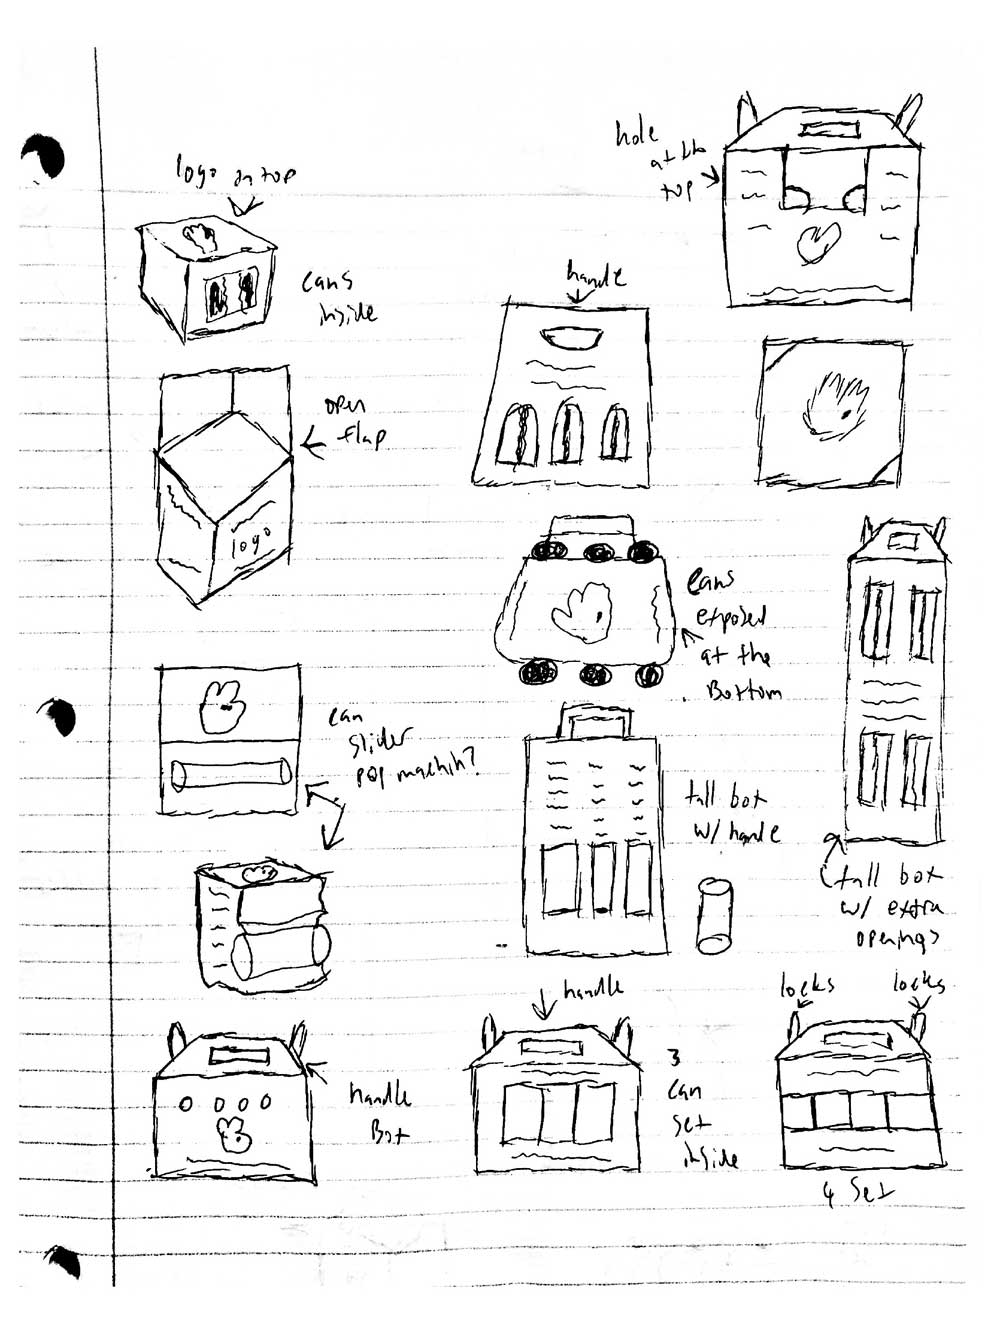 hole
at the
top
logo on top
cans
inside
handle
open
flap
logo
cans
exposed
at the
Bottom
can
slider
pop machin?
tall box
w/ handle
tall box
w/ extra
openings
handle
locks
locks
handle
Box
3
can
set
inside
4 set